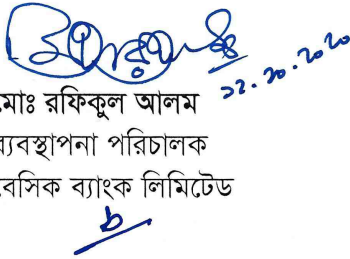 ২২.১০.২০২০
মোঃ রফিকুল আলম
ব্যবস্থাপনা পরিচালক
বেসিক ব্যাংক লিমিটেড
৮